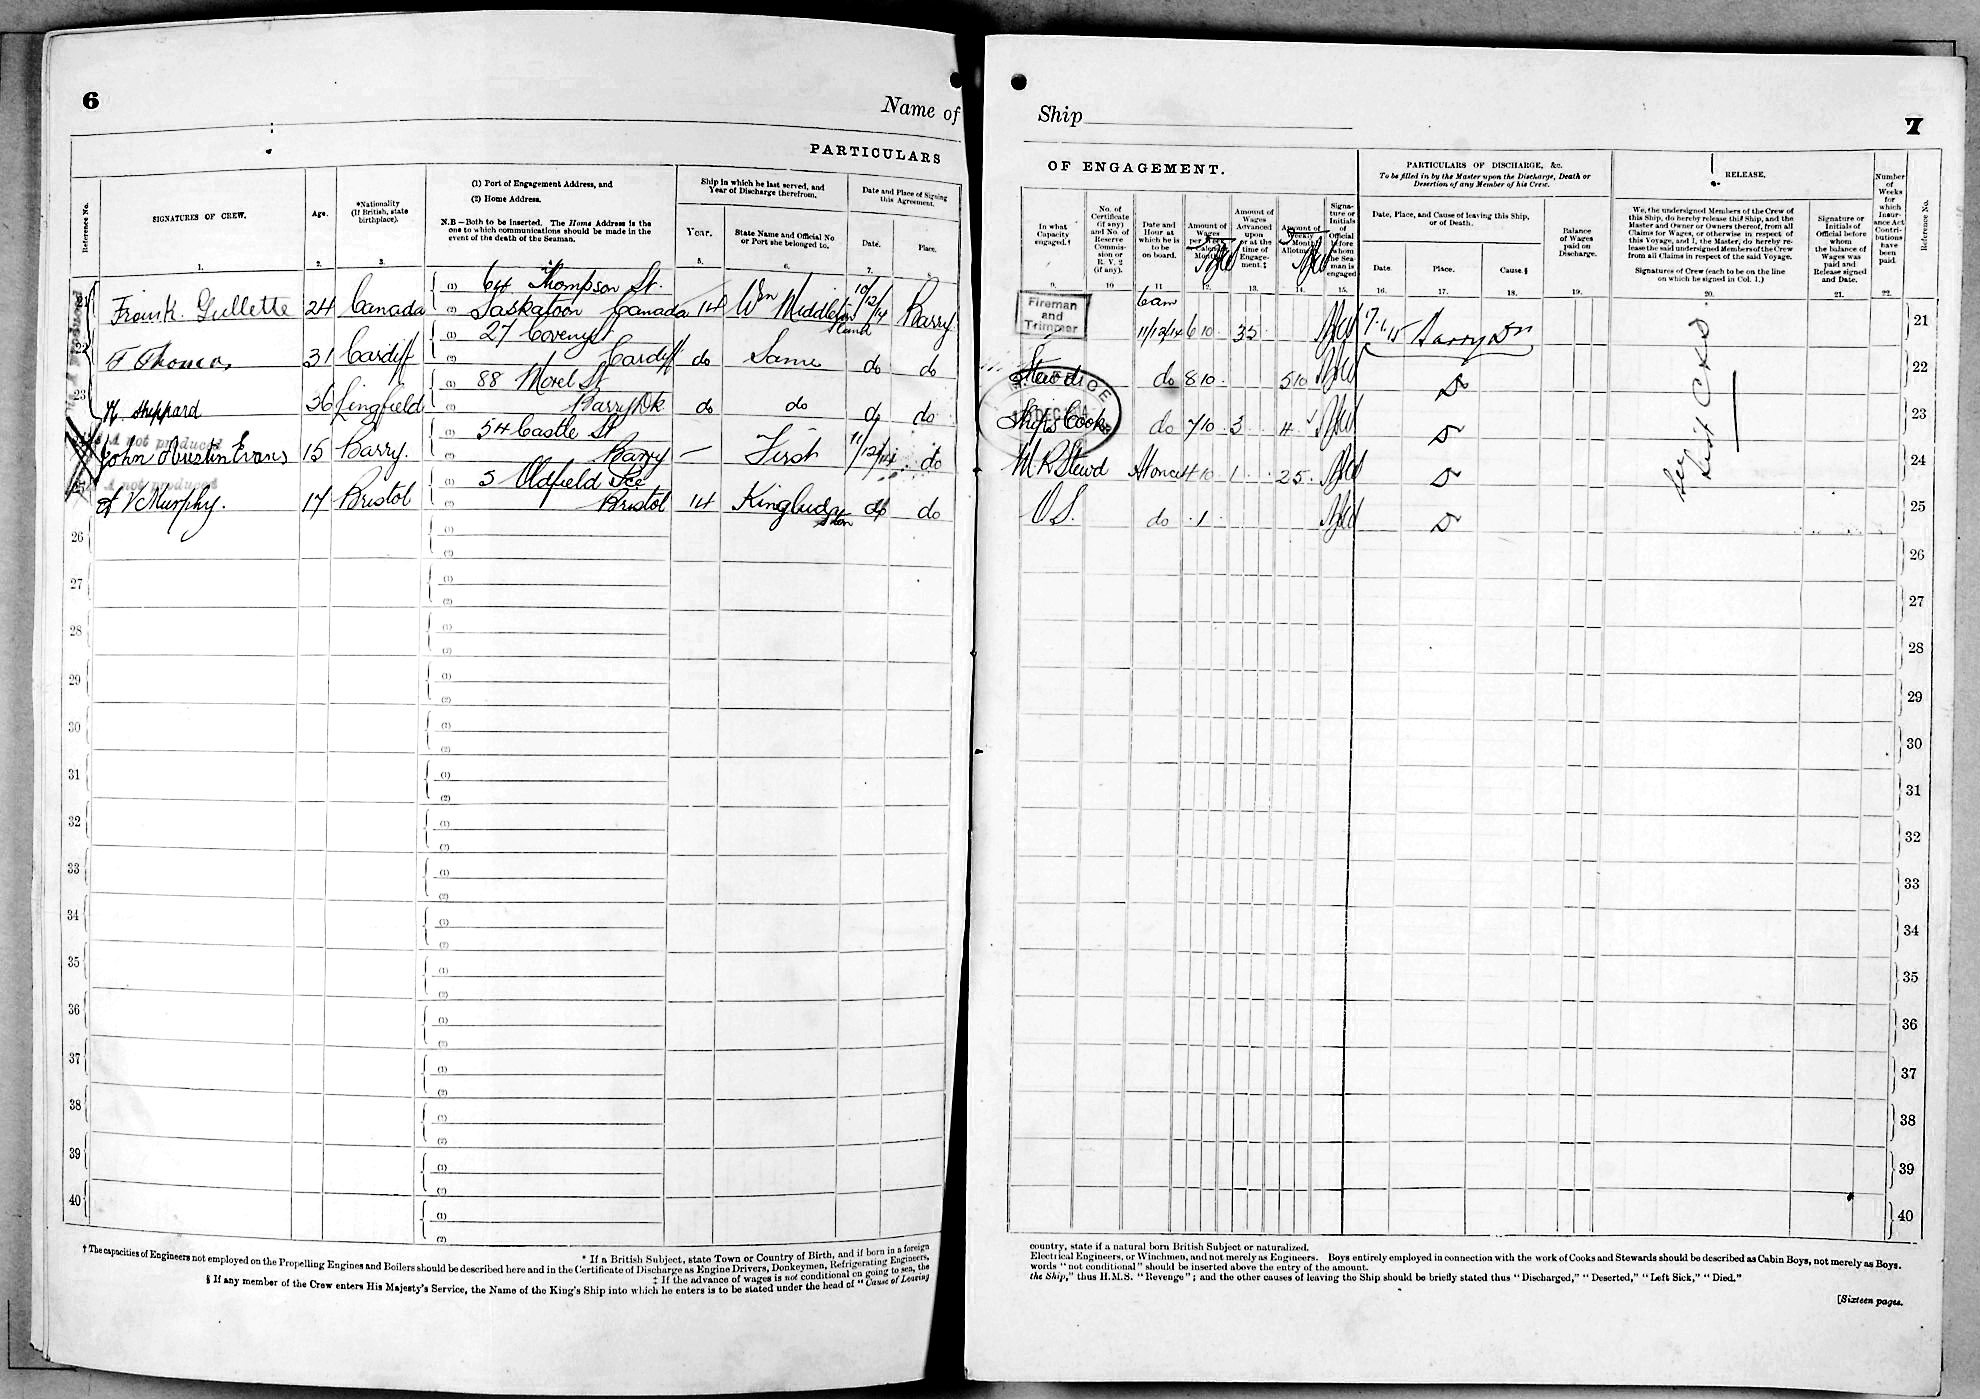 6
Name of
PARTICULARS
Reference No.
SIGNATURES OF CREW.
Age.
*Nationality
(If British, state
birthplace).
(1) Port of Engagement Address, and
(2) Home Address.
N.B—Both to be inserted. The Home Address is the
one to which communications should be made in the
event of the death of the Seaman.
Ship in which he last served, and
Year of Discharge therefrom.
Year.
State Name and Official No.
or Port she belonged to.
Date and Place of Signing
this Agreement.
Date.
Place.
1. 2. 3. 5. 6. 7.
(1) 64 Thompson St.
Frank Gullette 24 Canada (2) Saskatoon Canada 14 Wm Middleton 10/12/14 Barry
(1) 27 Coveny St
F Thomas 31 Cardiff (2) Cardiff do Same do do
(1) 88 Morel St
23 H. Sheppard 36 Lingfield (2) Barry Dk do do do do
(1) 54 Castle St
A not produced
John Austin Evans 15 Barry. (2) Barry — First 11/12/14 do
(1) 5 Oldfield Pce
A not produced
A V Murphy. 17 Bristol (2) Bristol 14 do do
26 (1)
(2)
27 (1)
(2)
28 (1)
(2)
29 (1)
(2)
30 (1)
(2)
31 (1)
(2)
32 (1)
(2)
33 (1)
(2)
34 (1)
(2)
35 (1)
(2)
36 (1)
(2)
37 (1)
(2)
38 (1)
(2)
39 (1)
(2)
40 (1)
(2)
† The capacities of Engineers not employed on the Propelling Engines and Boilers should be described here and in the Certificate of Discharge as Engine Drivers, Donkeymen, Refrigerating Engineers,
* If a British Subject, state Town or Country of Birth, and if born in a foreign
‡ If the advance of wages is not conditional on going to sea, the
§ If any member of the Crew enters His Majesty's Service, the Name of the King's Ship into which he enters is to be stated under the head of "Cause of Leaving
Ship
7
OF ENGAGEMENT.
PARTICULARS OF DISCHARGE, &c.
To be filled in by the Master upon the Discharge, Death or
Desertion of any Member of his Crew.
RELEASE.
In what
Capacity
engaged.†
No. of
Certificate
(if any)
and No. of
Reserve
Commis-
sion or
R. V. 2
(if any).
Date and
Hour at
which he is
to be
on board.
Amount of
Wages
per Week
Calendar
Month
Amount of
Wages
Advanced
upon
or at the
time of
Engage-
ment.‡
Amount of
Weekly
Monthly
Allotment
Signa-
ture or
Initials
of
Official
before
whom
the Sea-
man is
engaged
Date, Place, and Cause of leaving this Ship,
or of Death.
Date.
Place.
Cause.§
Balance
of Wages
paid on
Discharge.
We, the undersigned Members of the Crew of
this Ship, do hereby release this Ship, and the
Master and Owner or Owners thereof, from all
Claims for Wages, or otherwise in respect of
this Voyage, and I, the Master, do hereby re-
lease the said undersigned Members of the Crew
from all Claims in respect of the said Voyage.
Signatures of Crew (each to be on the line
on which he signed in Col. 1.)
Signature or
Initials of
Official before
whom
the balance of
Wages was
paid and
Release signed
and Date.
Number
of
Weeks
for
which
Insur-
ance Act
Contri-
butions
have
been
paid.
Reference No.
9. 10 11. 12. 13. 14. 15. 16. 17. 18. 19. 20. 21. 22.
Fireman
and
Trimmer
6am
11/12/14 6 10 35 7.1.15 Barry Dn 21
Steward do 8 10 5 10 22
Ships Cook do 7 10 3 4 23
M R Stewd At once 4 10 1 25 24
O S. do 1 25
See List C & D
26
27
28
29
30
31
32
33
34
35
36
37
38
39
40
country, state if a natural born British Subject or naturalized.
Electrical Engineers, or Winchmen, and not merely as Engineers. Boys entirely employed in connection with the work of Cooks and Stewards should be described as Cabin Boys, not merely as Boys.
words "not conditional" should be inserted above the entry of the amount.
the Ship," thus H.M.S. "Revenge"; and the other causes of leaving the Ship should be briefly stated thus "Discharged," "Deserted," "Left Sick," "Died."
[Sixteen pages.